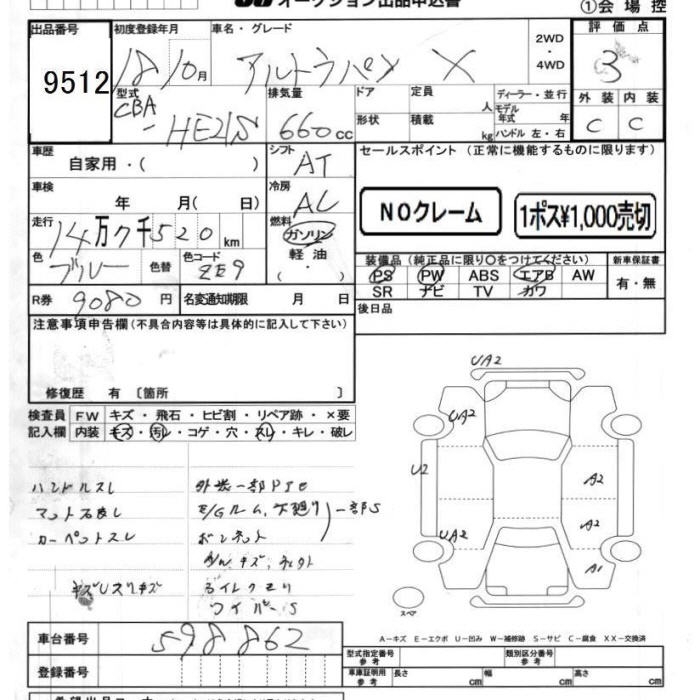 オークション出品申込書
①会場控
出品番号 初度登録年月 車名・グレード 評価点
9512 18 10月 アルトラパン X 2WD・4WD 3
型式 排気量 ドア 定員 人 ディーラー・並行 外装 内装
CBA-HE21S 660cc 形状 積載 kg モデル年式 年 ハンドル 左・右 C C
車歴 自家用・( ) シフト AT セールスポイント (正常に機能するものに限ります)
車検 年 月( 日) 冷房 AC
NOクレーム 1ポス¥1,000売切
走行 14万7千520km 燃料 ガソリン 軽油 ( ・ )
色 ブルー 色替 色コード ZE9
装備品 (純正品に限り○をつけてください) 新車保証書
PS PW ABS エアB AW 有・無
SR ナビ TV カワ
R券 9080円 名変通知期限 月 日
後日品
注意事項申告欄(不具合内容等は具体的に記入して下さい)
修復歴 有 〔箇所 〕
検査員 FW キズ・飛石・ヒビ割・リペア跡・×要
記入欄 内装 キズ・汚レ・コゲ・穴・スレ・キレ・破レ
ハンドルスレ 外装一部
カーペットスレ ボンネット
ワイパーS
一部S
UA2
UA2
U2
A2
A2
UA2
A1
スペア
A-キズ E-エクボ U-凹み W-補修跡 S-サビ C-腐食 XX-交換済
車台番号 598862
登録番号
型式指定番号 参考 類別区分番号 参考
車庫証明用 参考 長さ cm 幅 cm 高さ cm